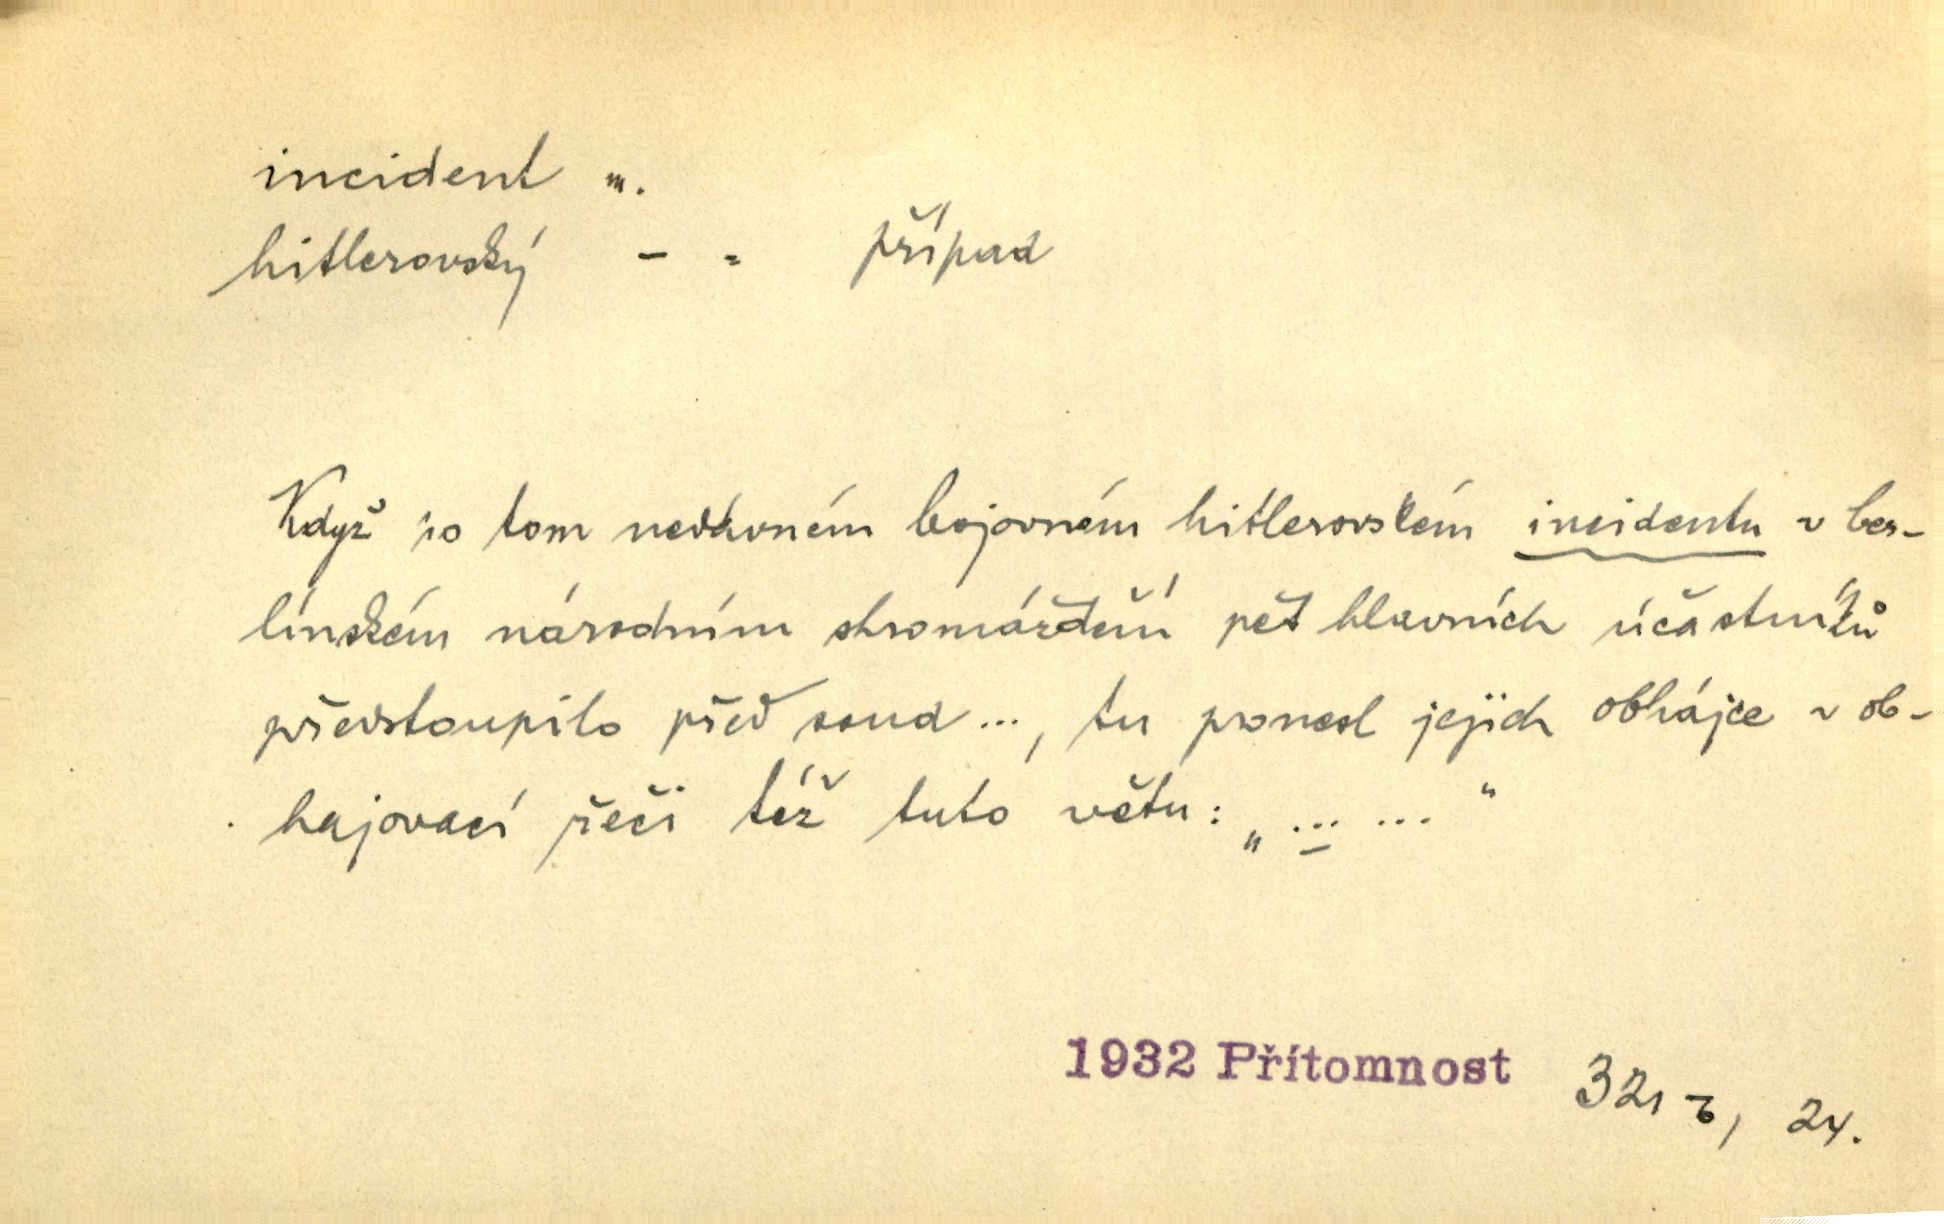 incident m.
hitlerovský – = případ
Když po tom nedávném bojovném hitlerovském incidentu v ber-
línském národním shromáždění pět hlavních účastníků
předstoupilo před soud ..., tu pronesl jejich obhájce v ob-
hajovací řeči též tuto větu: „ ... ... “
1932 Přítomnost 321 24.